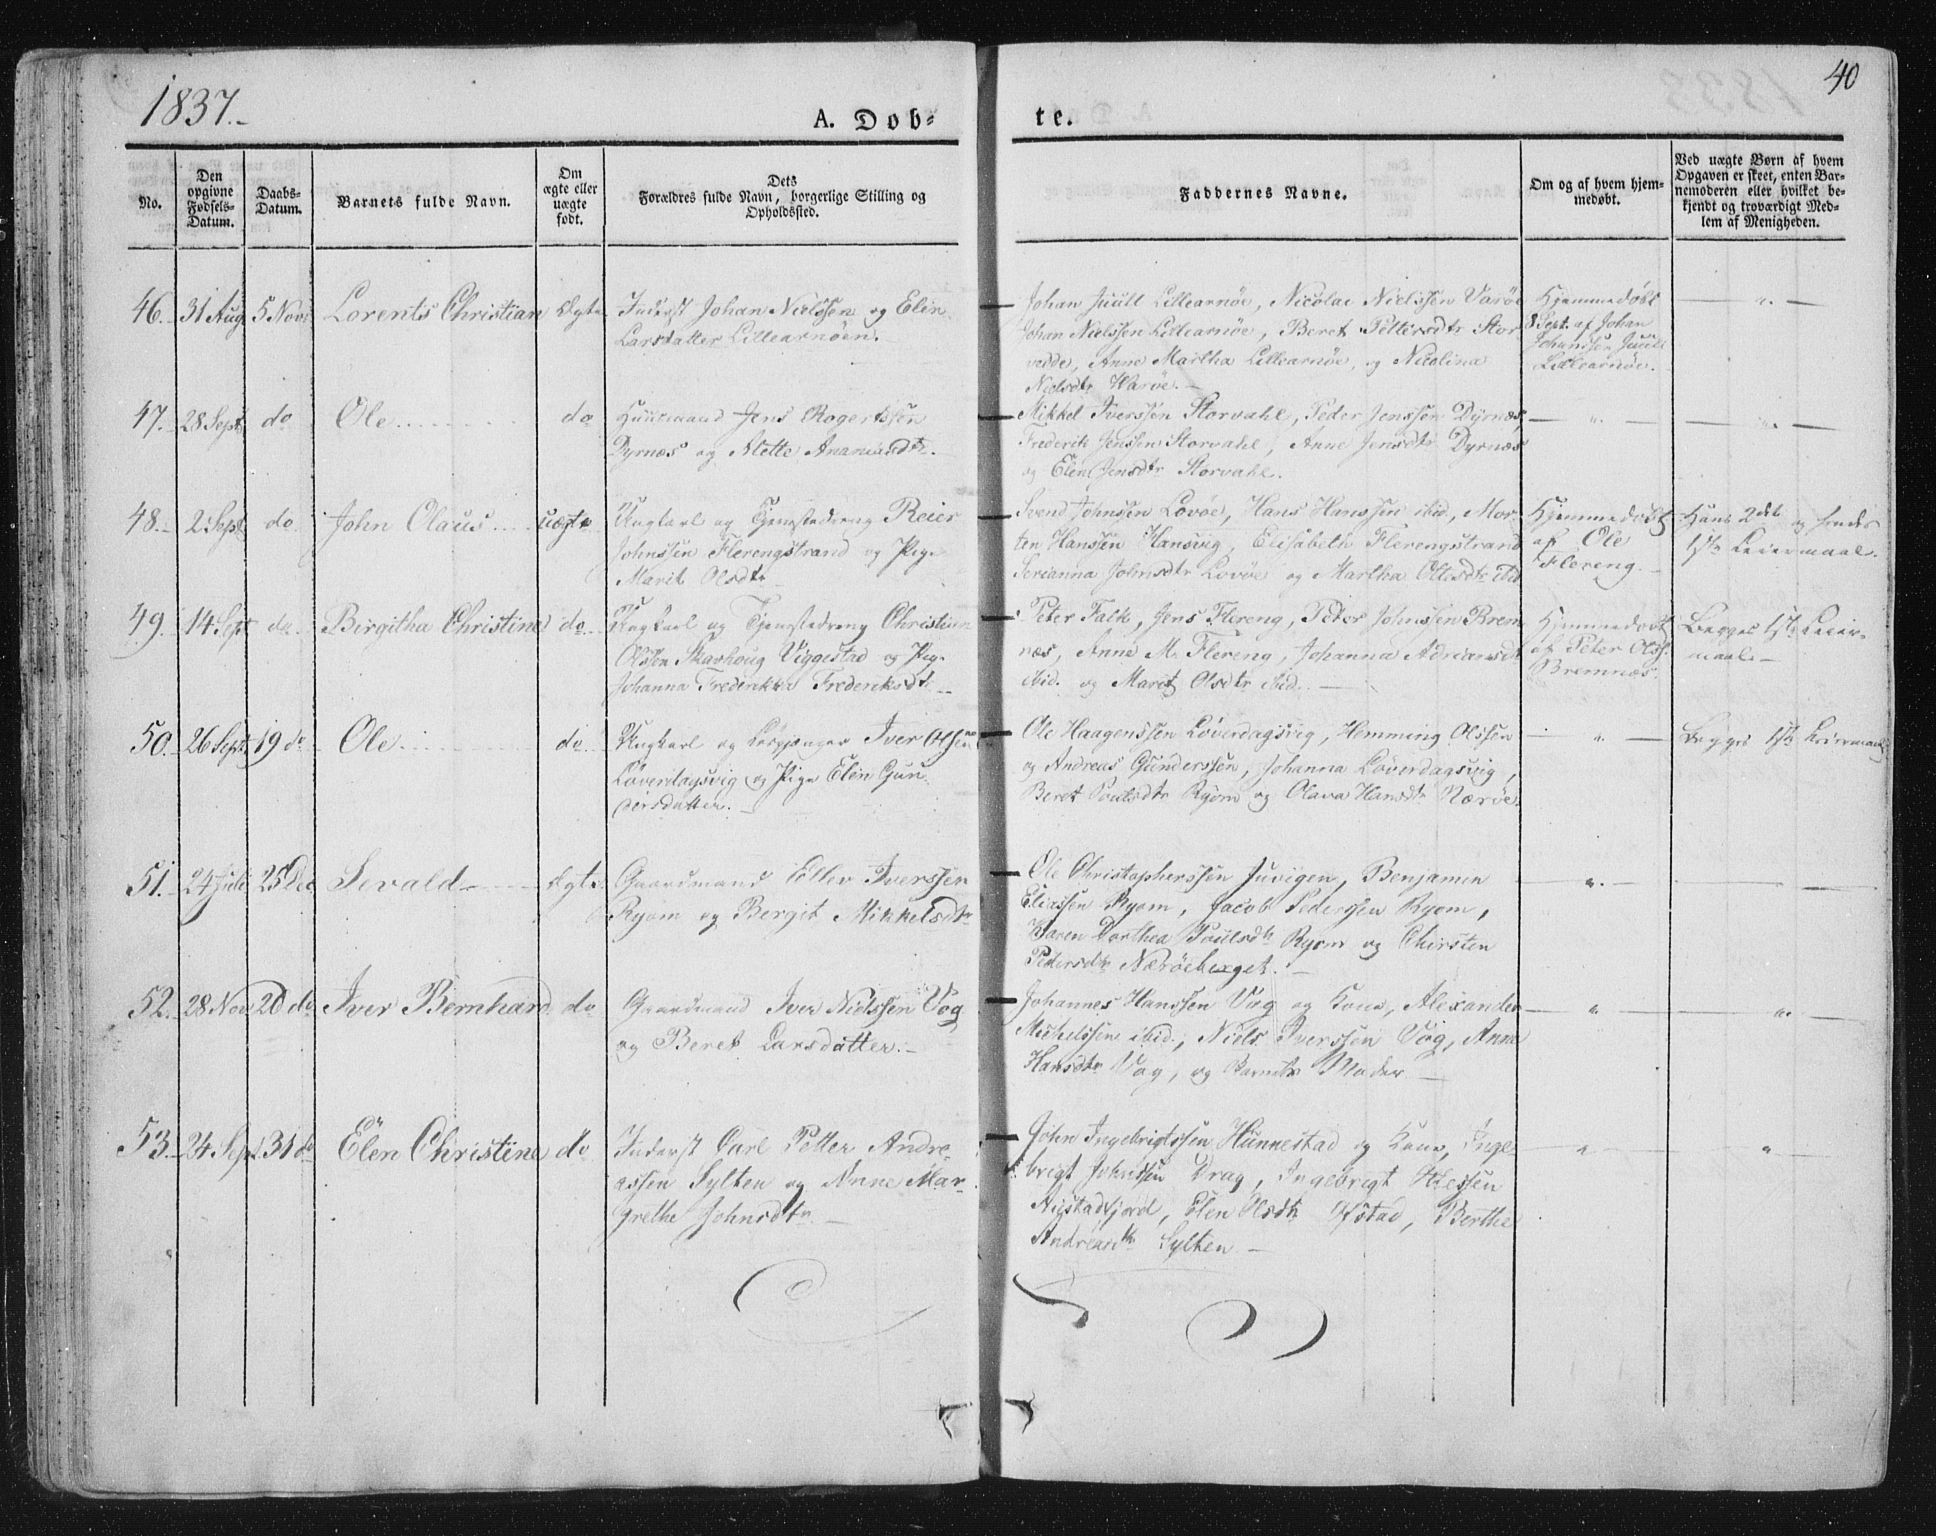 1837.-
40
A. Dob-
te.
No.
Den opgivne Fødsels-Datum.
Daabs-Datum.
Barnets fulde Navn.
Om ægte eller uægte født.
Dets Forældres fulde Navn, borgerlige Stilling og Opholdssted.
Faddernes Navne.
Om og af hvem hjem-
medøbt.
Ved uægte Børn af hvem
Opgaven er skeet, enten Bar-
nemoderen eller hvilket be-
kjendt og troværdigt Med-
lem af Menigheden.
46. 31 Aug 5 Novr Lorents Christian Ægte Inderst Johan Nielssen og Elen
Larsdatter Lillearnöen.
Johan Juull Lillearnöe, Nicolai Nielssen Varöe
Johan Nielssen Lillearnöe, Beret Pettersdtr Stor
vahle, Anne Martha Lillearnöe, og Nicolina
Nielsdtr Waröe.-
Hjemmedöbt
8 Sept. af Johan
Johanssen Juull
Lillearnöe.
47. 28 Sept do Ole do Huusmand Jens Rogertssen
Dyrnæs og Mette Ananiasdtr.
Mikkel Iverssen Storvahl, Peder Jenssen Dyrnæs,
Frederik Jenssen Storvahl, Anne Jensdtr Dyrnæs
og Elen Jensdtr Storvahl.
48. 2 Sept do. John Olaus uægte Ungkarl og Tjenstedreng Reier
Johnssen Flerengstrand og Pige
Marit Olsdtr
Svend Johnssen Lovöe, Hans Hanssen ibid, Mor-
ten Hanssen Hansvig, Elisabeth Flerengstrand
Serianna Johnsdtr Lovöe og Martha Ottesdtr ibid
Hjemmedöbt
af Ole
Flereng.
Hans 2det og hendes
1ste Leiermaal.
49. 14 Sept do. Birgitha Christine do Ungkarl og Tjenstedreng Christian
Olssen Skarhoug Viggestad og Pige
Johanna Frederikke Frederiksdtr
Peter Falk, Jens Flereng, Peter Johnssen Brem
næs, Anne M. Flereng, Johanna Adriansdtr
ibid. og Marit Olsdtr ibid.
Hjemmedöbt
af Peter Olss.
Bremnæs.
Begges 1ste Leier-
maal.-
50. 26 Sept. 19 do Ole do Ungkarl og Løsgjænger Iver Olssen
Löverdagsvig og Pige Elen Gun
dersdatter.
Ole Haagenssen Löverdagsvig, Hemming Olssen
og Andreas Gunderssen, Johanna Löverdagsvig,
Beret Poulsdtr Ryom og Olava Hansdtr Næröe.
Begges 1ste Leiermaal
51. 24 Juli 25 Dec Sevald Ægte Gaardmand Peller Iverssen
Ryom og Bergit Mikkelsdtr
Ole Christopherssen Juvigen, Benjamin
Eliassen Ryom, Jacob Pederssen Ryom,
Karen Dorthea Poulsdtr Ryom og Chirsten
Pedersdtr Næröeberget.-
52. 28 Nov 26 do Iver Bernhard do Gaardmand Iver Nielssen Vog
og Beret Larsdatter.-
Johannes Hanssen Vog og Kone, Alexander
Michelssen ibid., Niels Iverssen Vog, Anne
Hansdtr Vog, og Barnets Moder
53. 24 Sept 31 do Elen Christine do Inderst Carl Petter Andre-
assen Sylten og Anne Mar-
grethe Johnsdtr
John Ingebrigtssen Hunnestad og Kone, Inge
brigt Johnssen Drag, Ingebrigt
Elen Olsdtr Ofstad, Berthe
Andreasdtr Sylten